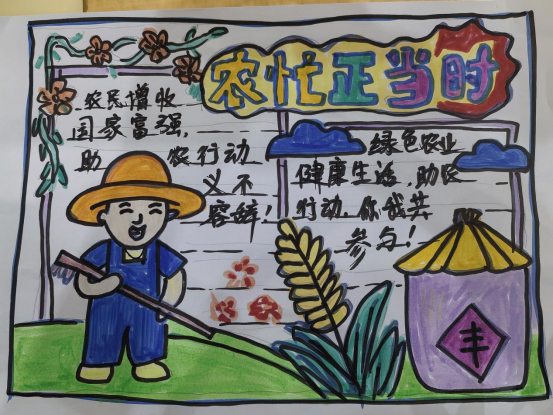 农忙正当时
农民增收
国家富强,
助 农行动
义不
容辞!
绿色农业
健康生活,助农
行动,你我共
参与!
丰